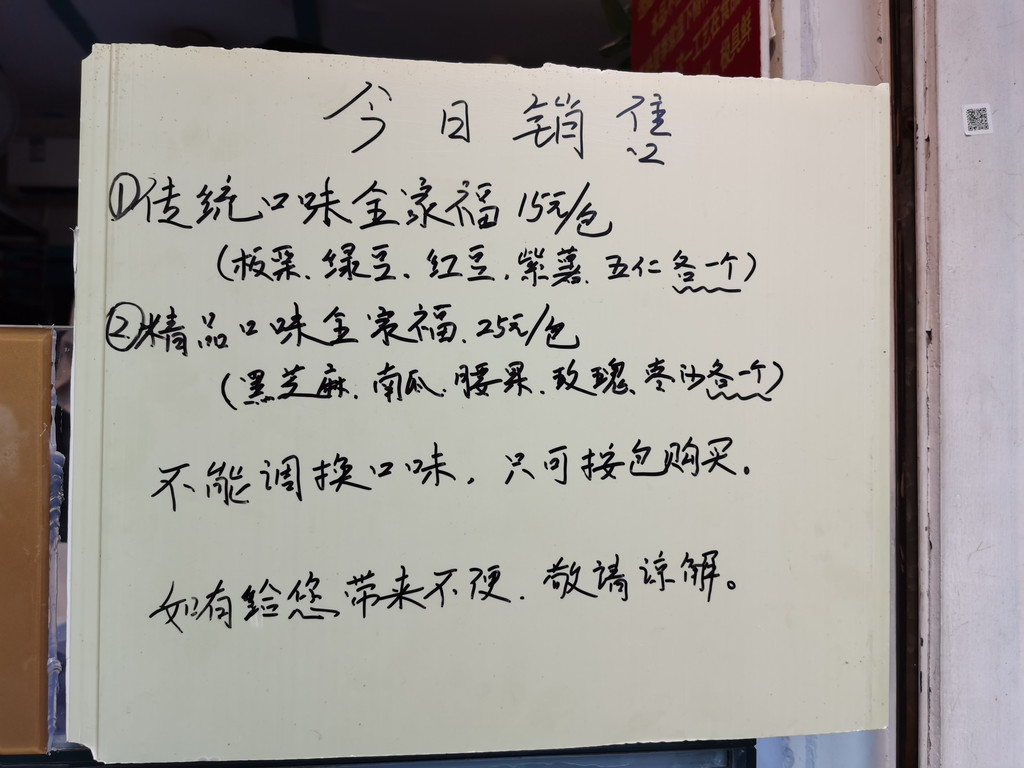 今日销售
①传统口味全家福 15元/包
(板栗、绿豆、红豆、紫薯、五仁各一个)
②精品口味全家福、25元/包
(黑芝麻、南瓜、腰果、玫瑰、枣沙各一个)
不能调换口味，只可按包购买。
如有给您带来不便，敬请谅解。